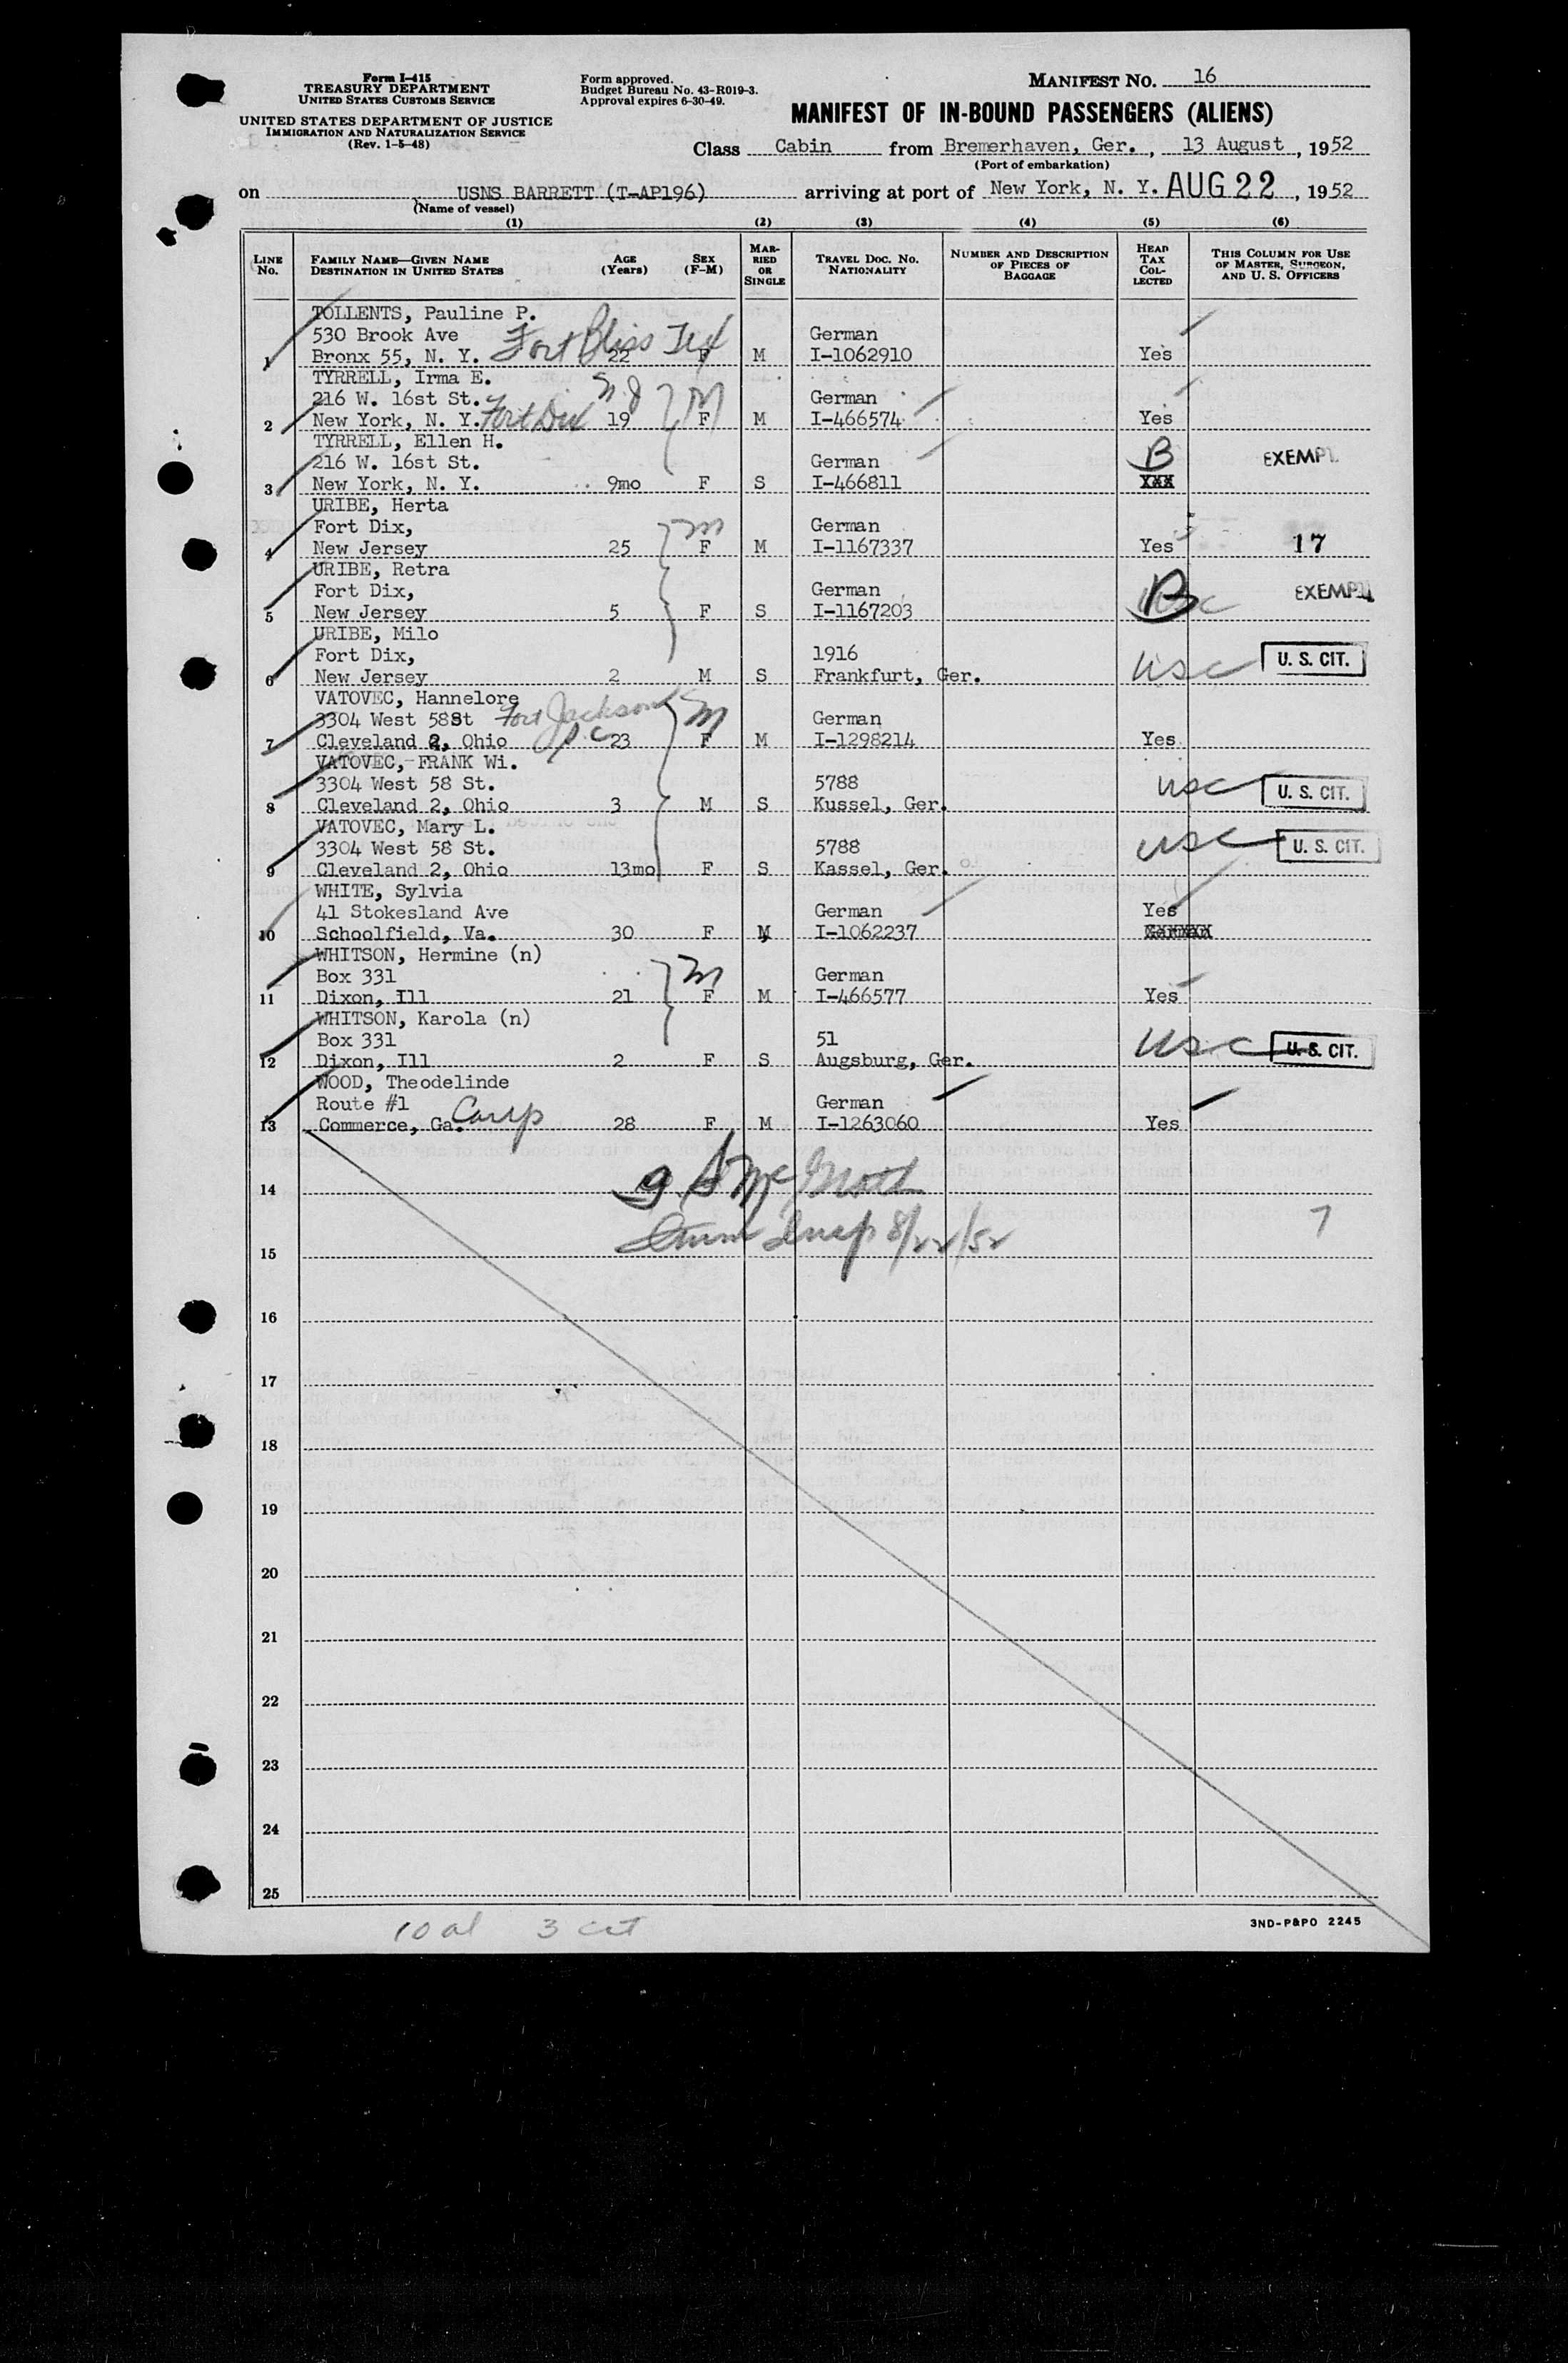 Form I-415
TREASURY DEPARTMENT
UNITED STATES CUSTOMS SERVICE
UNITED STATES DEPARTMENT OF JUSTICE
IMMIGRATION AND NATURALIZATION SERVICE
(Rev. 1-5-48)
Form approved.
Budget Bureau No. 43-R019-3.
Approval expires 6-30-49.
MANIFEST NO. 16
MANIFEST OF IN-BOUND PASSENGERS (ALIENS)
Class Cabin from Bremerhaven, Ger., 13 August, 1952
(Port of embarkation)
on USNS BARRETT (T-AP196) arriving at port of New York, N. Y. AUG 22, 1952
(Name of vessel)
(1) (2) (3) (4) (5) (6)
LINE No.
FAMILY NAME—GIVEN NAME
DESTINATION IN UNITED STATES
AGE (Years)
SEX (F-M)
MARRIED OR SINGLE
TRAVEL DOC. NO. NATIONALITY
NUMBER AND DESCRIPTION OF PIECES OF BAGGAGE
HEAD TAX COLLECTED
THIS COLUMN FOR USE OF MASTER, SURGEON, AND U. S. OFFICERS
TOLLENTS, Pauline P.
530 Brook Ave Fort Bliss Tex German
1 Bronx 55, N. Y. 22 F M I-1062910 Yes
TYRRELL, Irma E. N J
216 W. 16st St. M German
2 New York, N. Y. Fort Dix 19 F M I-466574 Yes
TYRRELL, Ellen H.
216 W. 16st St. German B EXEMPT
3 New York, N. Y. 9mo F S I-466811 XXX
URIBE, Herta
Fort Dix, m German
4 New Jersey 25 F M I-1167337 Yes 17
URIBE, Retra
Fort Dix, German B EXEMPT
5 New Jersey 5 F S I-1167203
URIBE, Milo
Fort Dix, 1916 USC U. S. CIT.
6 New Jersey 2 M S Frankfurt, Ger.
VATOVEC, Hannelore
3304 West 58St Fort Jackson S C M German
7 Cleveland 2, Ohio 23 F M I-1298214 Yes
VATOVEC, FRANK Wi.
3304 West 58 St. 5788 USC U. S. CIT.
8 Cleveland 2, Ohio 3 M S Kussel, Ger.
VATOVEC, Mary L.
3304 West 58 St. 5788 USC U. S. CIT.
9 Cleveland 2, Ohio 13mo F S Kassel, Ger.
WHITE, Sylvia
41 Stokesland Ave German Yes
10 Schoolfield, Va. 30 F M I-1062237
WHITSON, Hermine (n)
Box 331 M German
11 Dixon, Ill 21 F M I-466577 Yes
WHITSON, Karola (n)
Box 331 51 USC U. S. CIT.
12 Dixon, Ill 2 F S Augsburg, Ger.
WOOD, Theodelinde
Route #1 German
13 Commerce, Ga. 28 F M I-1263060 Yes
14
Insp 8/22/52 7
15
16
17
18
19
20
21
22
23
24
25
10 al 3 cit
3ND-P&PO 2245